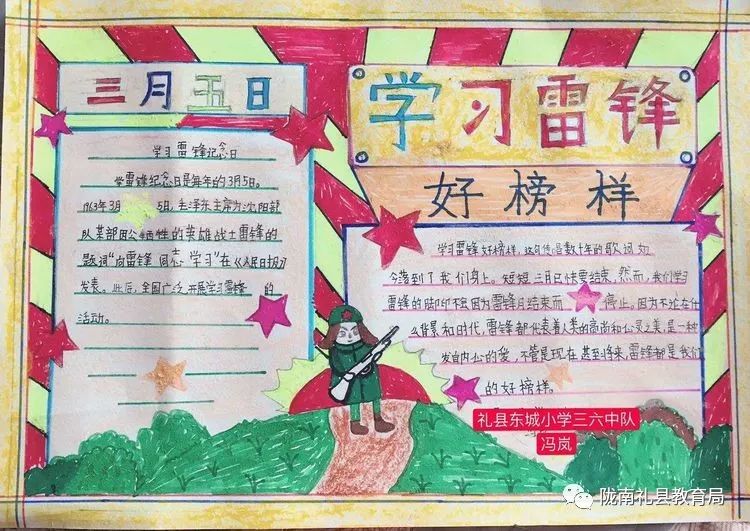 三月五日
学习雷锋纪念日
学雷锋纪念日是每年的3月5日。
1963年3月5日,毛泽东主席为沈阳部
队某部因公牺牲的英雄战士雷锋的
题词“向雷锋同志学习”在《人民日报》
发表。此后,全国广泛开展学习雷锋的
活动。
学习雷锋
好榜样
学习雷锋好榜样,这句传唱数十年的歌词如
今落到了我们身上。短短三月已快要结束,然而,我们学习
雷锋的脚印不会因为雷锋月结束而停止,因为不论在什
么背景和时代,雷锋都代表着人类的高尚和心灵之美是一种
发自内心的爱,不管是现在甚到将来,雷锋都是我们
的好榜样。
礼县东城小学三六中队
冯岚
陇南礼县教育局